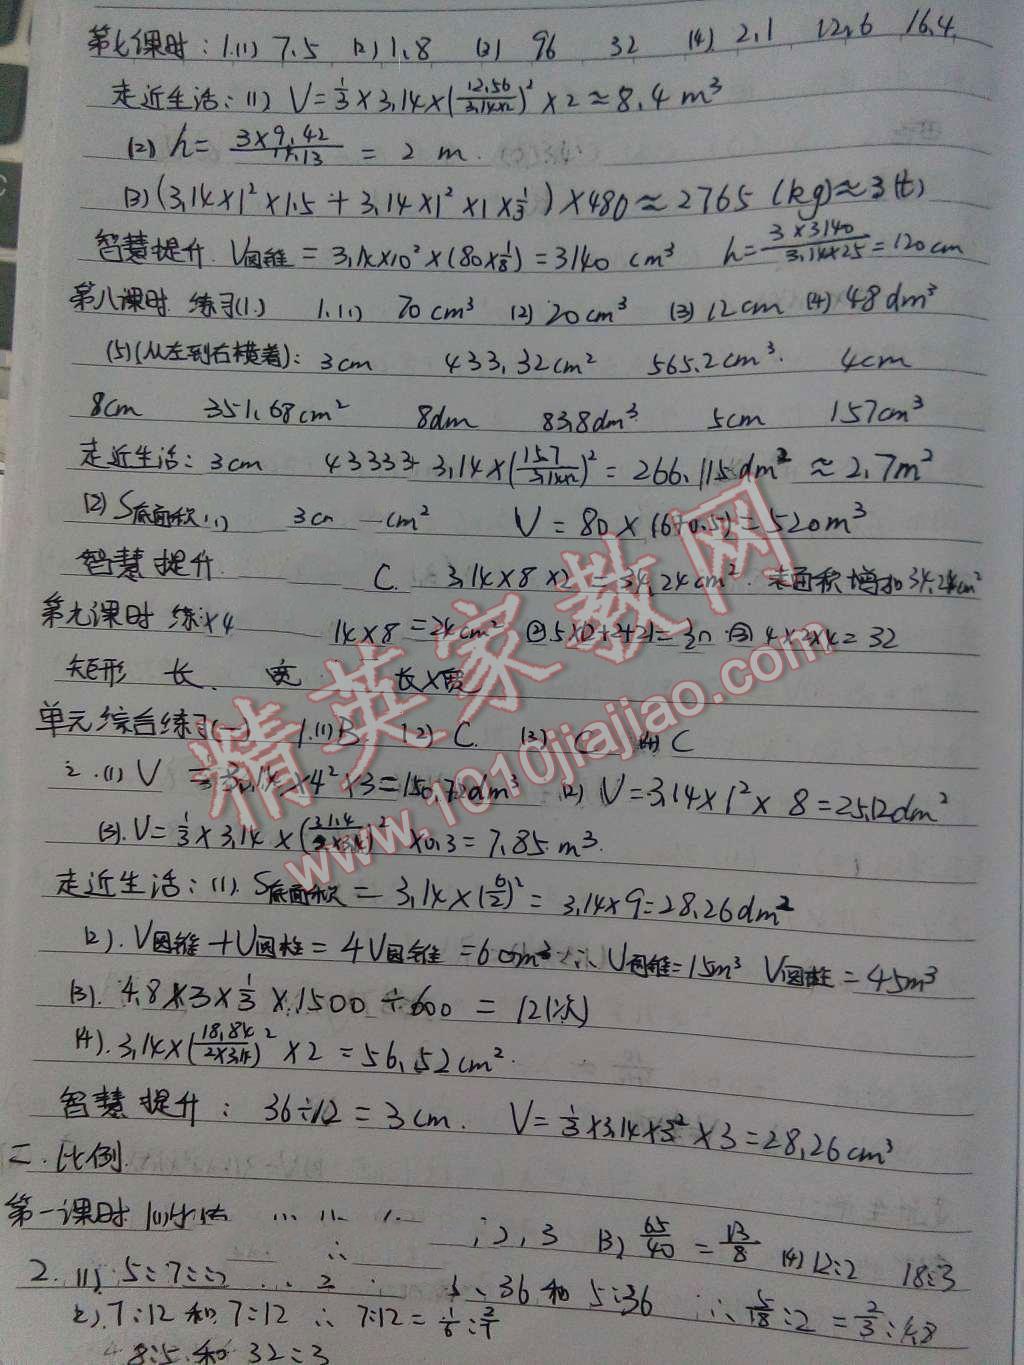 第七课时：1.(1) 7.5 (2) 1.8 (3) 96 32 (4) 2.1 12.6 16.4
走近生活：(1) V=1/3×3.14×(12.56/3.14×2)²×2≈8.4m³
(2) h=3×9.42/14.13=2m.
(3)(3.14×1²×1.5+3.14×1²×1×1/3)×480≈2765(kg)≈3(t)
智慧提升. V圆锥=3.14×10²×(80×1/8)=3140cm³ h=3×3140/3.14×25=120cm
第八课时 练习(1.) 1.(1) 70cm³ (2) 20cm³ (3) 12cm (4) 48dm³
(5)(从左到右横着)：3cm 433.32cm² 565.2cm³. 4cm
8cm 351.68cm² 8dm 83.8dm³ 5cm 157cm³
走近生活：3cm 43333+3.14×(15.7/3.14×2)²=266.115dm²≈2.7m²
(2) S底面积 3c cm² V=80×(6+0.5)=520m³
智慧提升 C. 3.14×8×2=34.24cm². 表面积增加34.24cm²
第九课时 练 4 1 ×8=24cm² ②5×(2+2+2)=30 ③4×2×4=32
矩形 长. 宽 长×宽
单元综合练习(一) 1.(1)B (2) C. (3) C (4) C
2.(1) V = 3.14×4²×3=150.72dm³ (2) V=3.14×1²×8=25.12dm²
(3).V=1/3×3.14×(31.4/2×3.14)²×0.3=7.85m³.
走近生活：(1). S底面积=3.14×(6/2)²=3.14×9=28.26dm²
(2). V圆锥+V圆柱=4V圆锥=60m³ ∴V圆锥=15m³ V圆柱=45m³
(3). 4.8×3×1/3×1500÷600=12(次)
(4). 3.14×(18.84/2×3.14)²×2=56.52cm².
智慧提升：36÷12=3cm. V=1/3×3.14×3²×3=28.26cm³
二.比例
第一课时 ；2，3 (3) 65/40=13/8 (4) 12:2 18:3
2. (1) 5:7 36和5:36 ∴5/18:2=2/3:4.8
(2). 7:12和7:12 ∴7:12=1/6:2/7
8:5和32:3
精英家教网
www.1010jiajiao.com